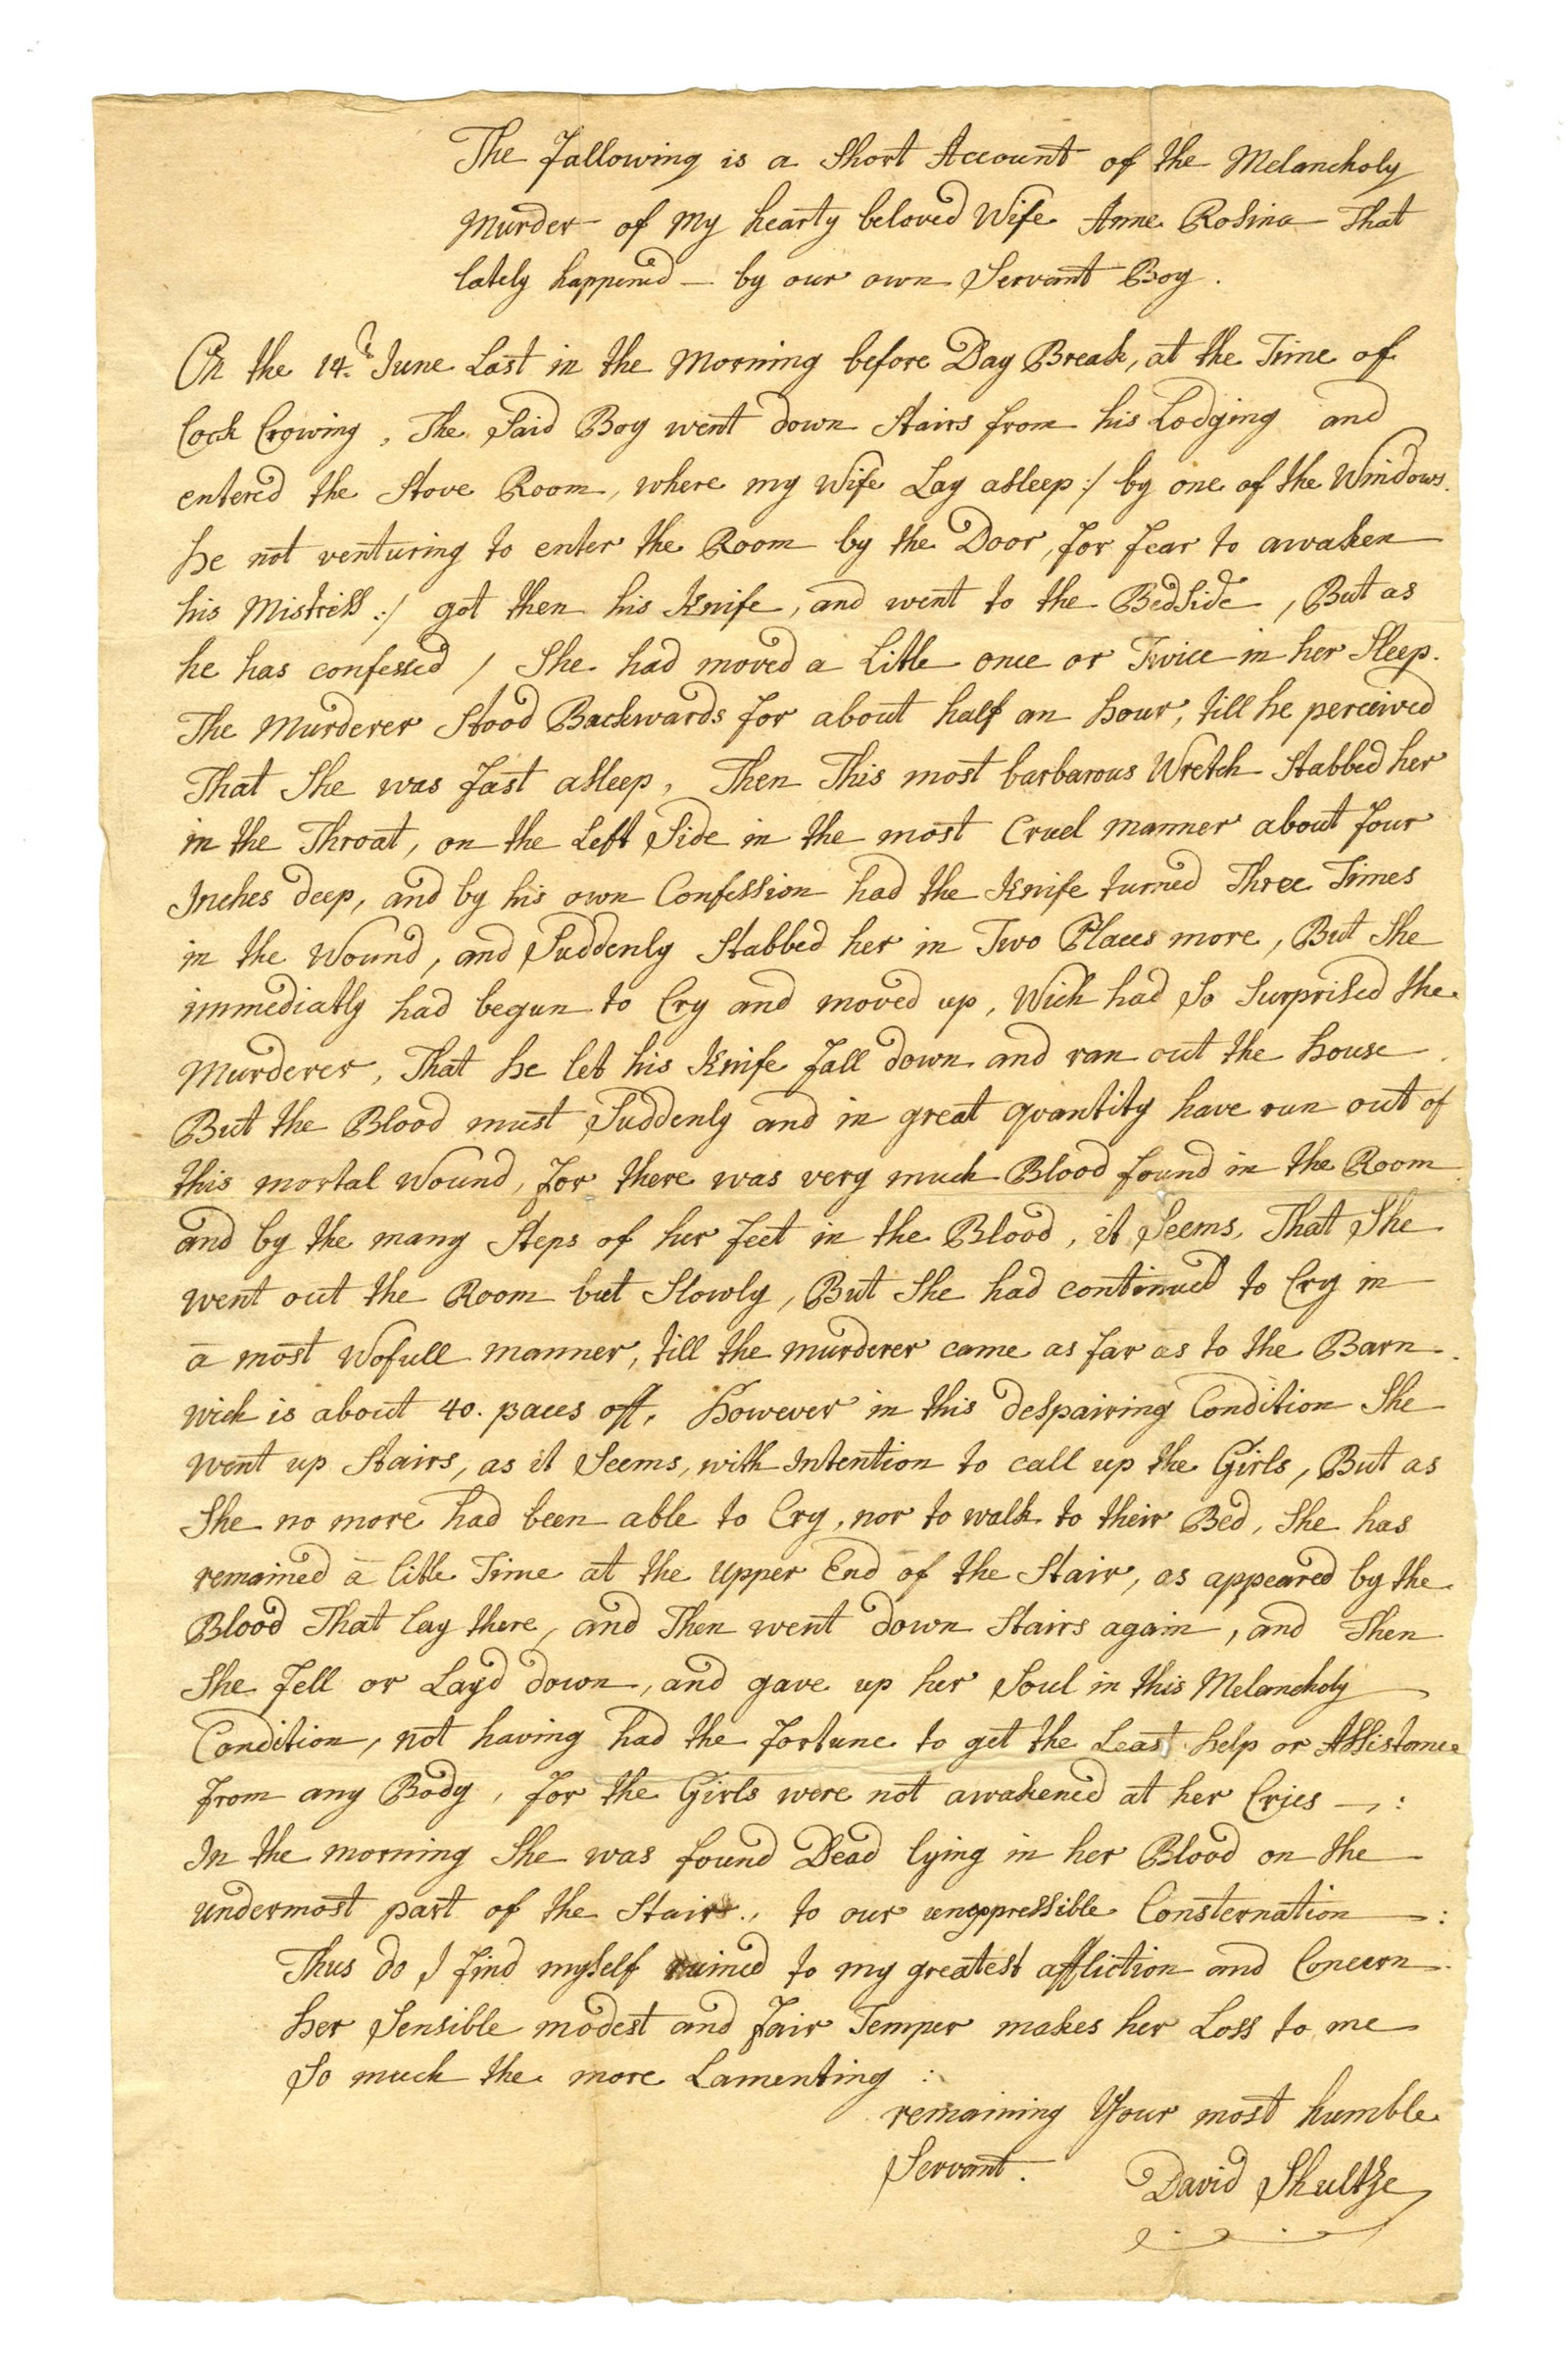 The Fallowing is a Short Account of the Melancholy
Murder of My hearty beloved Wife Anne Rosina That
lately happened — by our own Servant Boy.
On the 14.th June Last in the Morning before Day Break, at the Time of
Cock Crowing, The Said Boy went down Stairs from his Lodging and
entered the Stove Room, where my Wife Lay asleep :/ by one of the Windows.
he not venturing to enter the Room by the Door, for fear to awaken
his Mistriss :/ got then his Knife, and went to the BedSide, But as
he has confessed / She had moved a Little once or Twice in her Sleep.
The Murderer Stood Backwards for about half an hour, till he perceived
That She was fast asleep, Then This most barbarous Wretch Stabbed her
in the Throat, on the Left Side in the most Cruel manner about four
Inches deep, and by his own Confession had the Knife turned Three Times
in the Wound, and Suddenly Stabbed her in Two Places more, But She
immediatly had begun to Cry and moved up, Wich had So Surprised the
Murderer, That he let his Knife fall down and ran out the house.
But the Blood must Suddenly and in great quantity have run out of
this mortal Wound, for there was very much Blood found in the Room
and by the many Steps of her feet in the Blood, it Seems, That She
went out the Room but Slowly, But She had continued to Cry in
a most Wofull manner, till the murderer came as far as to the Barn.
wich is about 40. paces off. However in this despairing Condition She
went up Stairs, as it Seems, with Intention to call up the Girls, But as
She no more had been able to Cry, nor to walk to their Bed, She has
remained a litle Time at the Upper End of the Stair, as appeared by the
Blood That lay there, and Then went down Stairs again, and Then
She fell or Layd down, and gave up her Soul in this Melancholy
Condition, not having had the fortune to get the Least help or Assistance
from any Body, for the Girls were not awakened at her Cries —,:
In the morning She was found Dead lying in her Blood on the
undermost part of the Stairs., to our unexppressible Consternation —:
Thus do I find myself ruined to my greatest affliction and Concern.
her Sensible modest and fair Temper makes her Loss to me
So much the more Lamenting :
remaining Your most humble
Servant. David Shultze